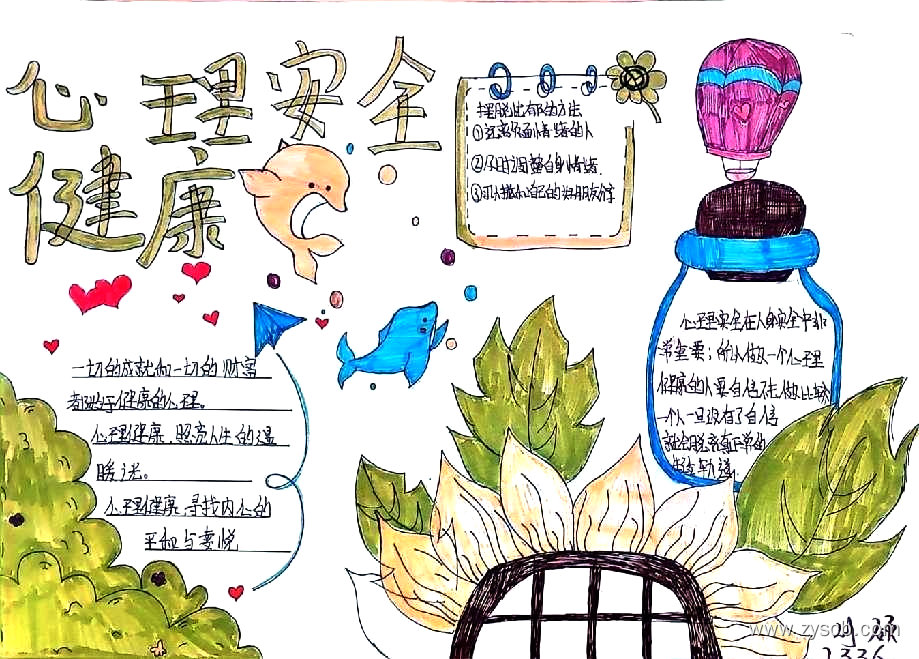 心理安全
健康
摆脱此郁的方法
①远离负面情绪的人
②及时调整自身情绪.
③可以撒心自己的好朋友伴
一切的成就和一切的财富
都始于健康的心理。
心理健康，照亮人生的温
暖之光。
心理健康，寻找内心的
平和与喜悦
心理安全在人身安全中非
常重要；所以做一个心理
健康的人要自信不做比较
一个人一旦没有了自信
就会脱离正常的
轨道
www.zyscb.com
2336